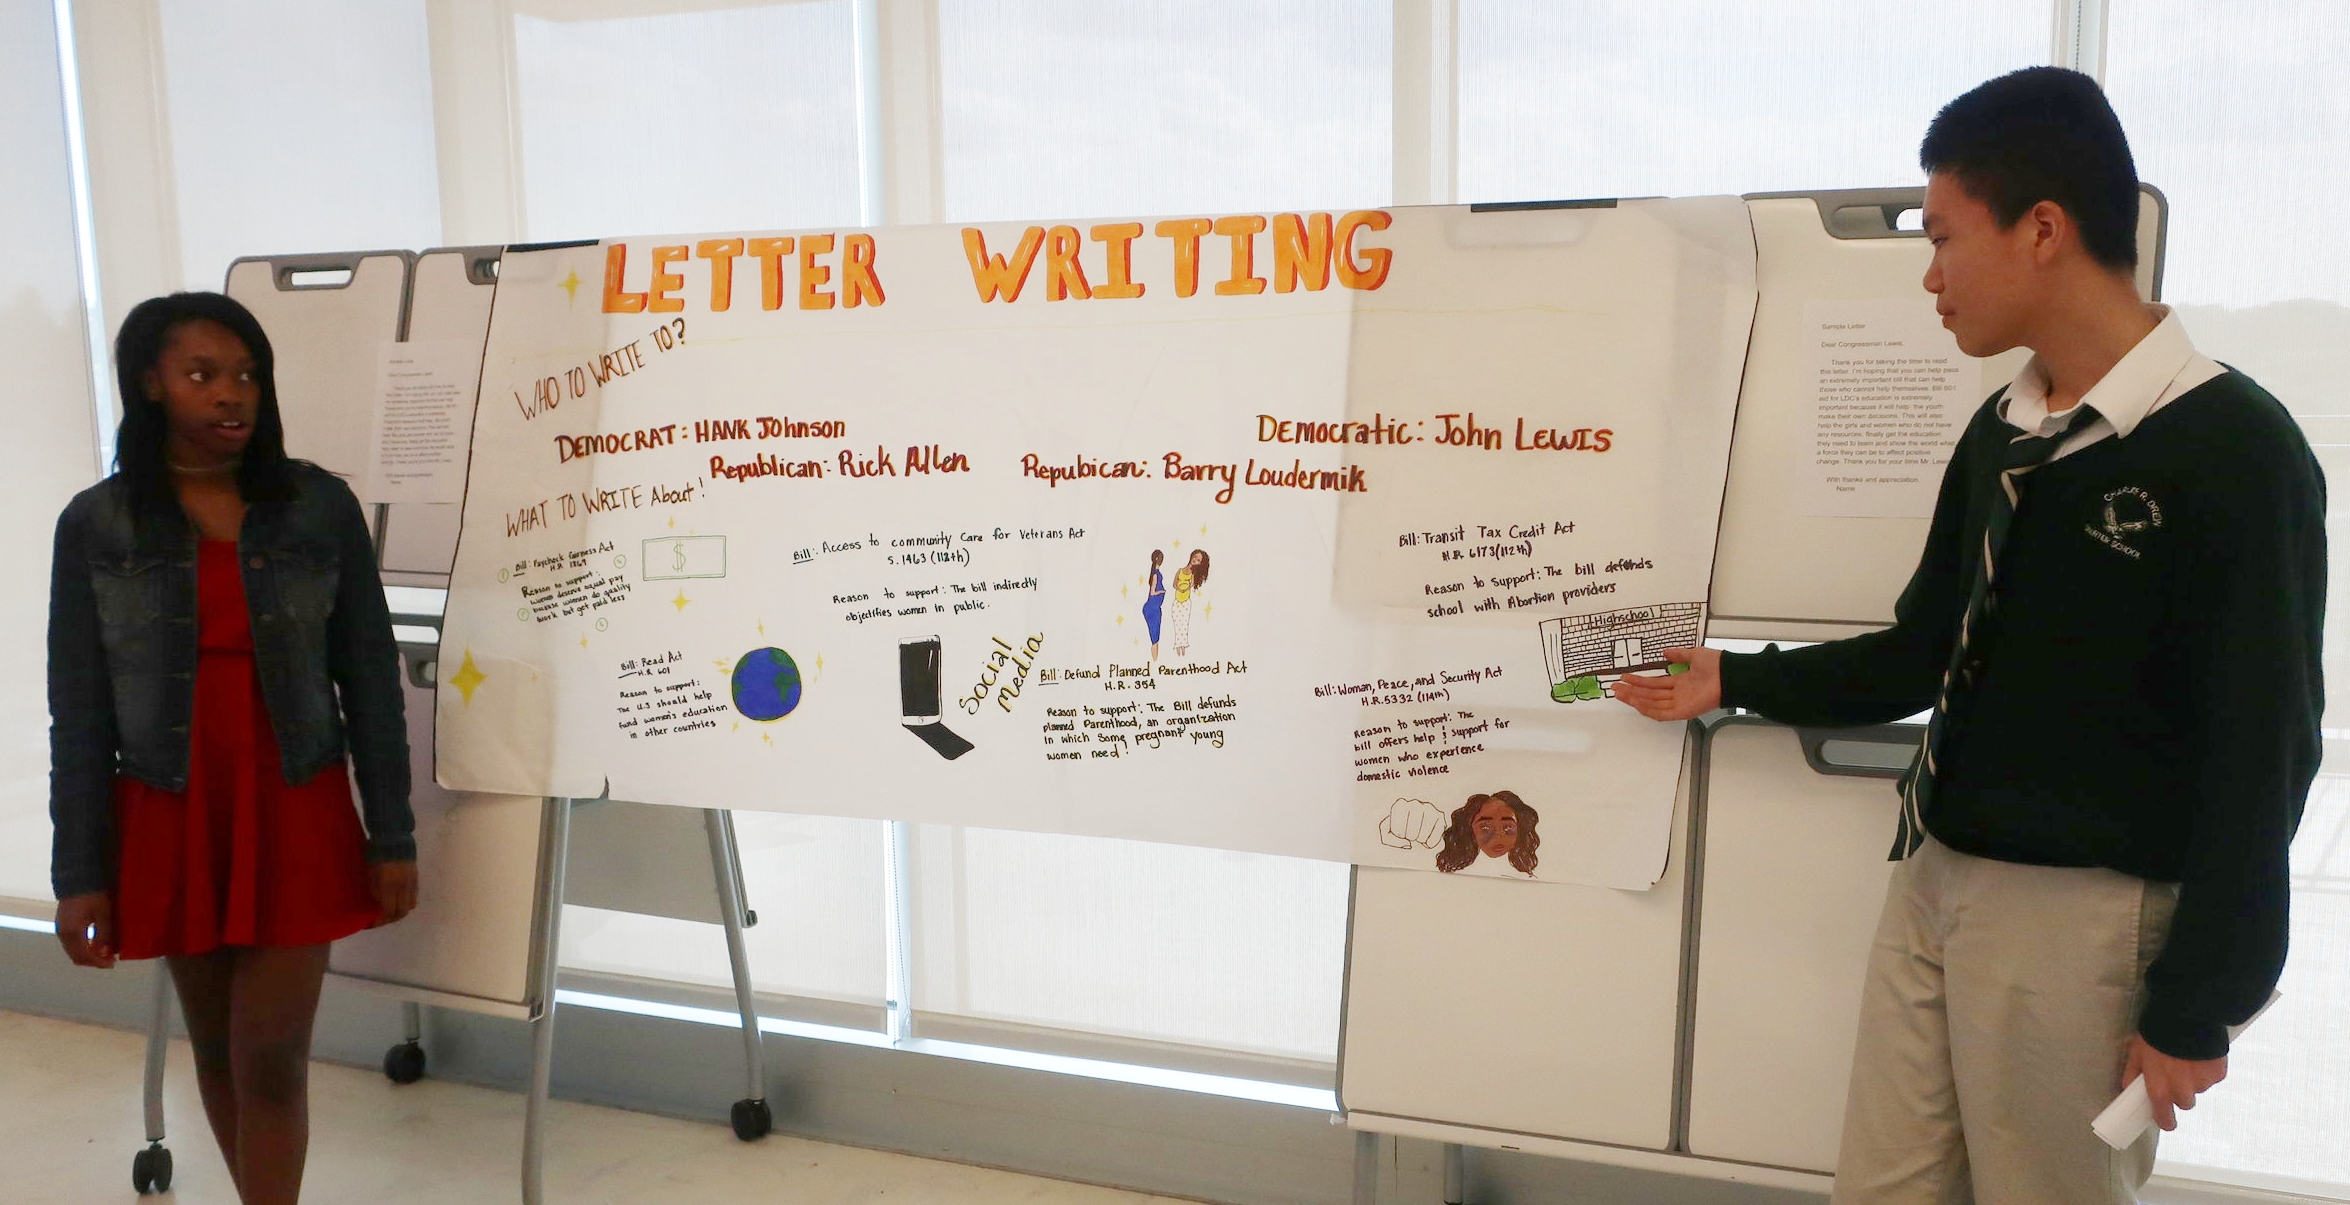 LETTER WRITING
WHO TO WRITE TO?
DEMOCRAT: HANK JOHNSON
Republican: Rick Allen
Democratic: John Lewis
Repubican: Barry Loudermik
WHAT TO WRITE About!
Bill: Paycheck Fairness Act
H.R. 1869
Reason to support:
women deserve equal pay
because women do quality
work but get paid less
$
Bill: Read Act
H.R. 601
Reason to support:
The U.S should help
fund women's education
in other countries
Bill: Access to community Care for Veterans Act
S. 1463 (112th)
Reason to support: The bill indirectly
objectifies women in public.
Social
Media
Bill: Defund Planned Parenthood Act
H.R. 354
Reason to support: The Bill defunds
planned Parenthood, an organization
in which some pregnant young
women need!
Bill: Transit Tax Credit Act
H.R. 6173 (112th)
Reason to support: The bill defends
school with Abortion providers
Highschool
Bill: Woman, Peace, and Security Act
H.R. 5332 (114th)
Reason to support: The
bill offers help & support for
women who experience
domestic violence
Sample Letter
Dear Congressman Lewis,
Thank you for taking the time to read
this letter. I'm hoping that you can help pass
an extremely important bill that can help
those who cannot help themselves. Bill 601
aid for LDC's education is extremely
important because it will help the youth
make their own decisions. This will also
help the girls and women who do not have
any resources, finally get the education
they need to learn and show the world what
a force they can be to affect positive
change. Thank you for your time Mr. Lewis
With thanks and appreciation,
Name
CHARLES R. DREW
CHARTER SCHOOL